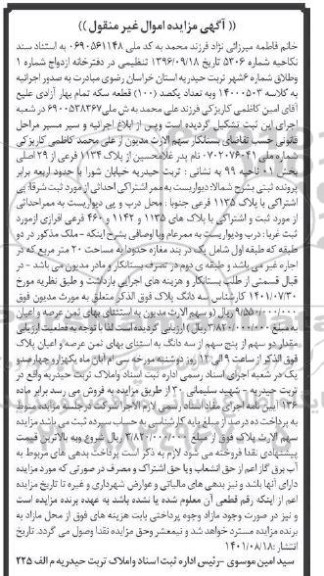 (( آگهی مزایده اموال غیر منقول ))
خانم فاطمه میرزائی نژاد فرزند محمد به کد ملی ۰۶۹۰۵۶۱۱۴۸ به استناد سند
نکاحیه شماره ۵۳۰۶ تاریخ ۱۳۹۶/۰۹/۱۸ تنظیمی در دفترخانه ازدواج شماره ۱
وطلاق شماره ۶ شهر تربت حیدریه استان خراسان رضوی مبادرت به صدور اجرائیه
به کلاسه ۱۴۰۰۰۵۰۳ وبه تعداد یکصد (۱۰۰) قطعه سکه تمام بهار آزادی علیع
آقای امین کاظمی کاریزکی فرزند علی محمد به ش ملی ۶۹۰۰۵۳۸۳۶۷ در شعبه
اجرای این ثبت تشکیل گردیده است وپس از ابلاغ اجرائیه و سیر مسیر مراحل
قانونی حسب تقاضای بستانکار سهم الارث مدیون از علی محمد کاظمی کاریزکی
شماره ملی ۰۷۰۲۰۷۶۰۲۱ نام پدر غلامحسین از پلاک ۱۱۳۴ فرعی از ۲۹ اصلی
بخش ۰۱ ناحیه ۹۹ به نشانی : تربت حیدریه خیابان شورا با حدود اربعه برابر
پرونده ثبتی بشرح شمالا: دیواریست به ممر اشتراکی احداثی از مورد ثبت شرقا: پی
اشتراکی با پلاک ۱۱۳۵ فرعی جنوبا : محل درب و پی دیواریست به ممر احداثی
از مورد ثبت و اشتراکی با پلاک های ۱۱۳۵ و ۱۱۴۲ و ۴۶۰ فرعی افرازی ازمورد
ثبت غربا: درب ودیواریست به ممر عام وبا اوصافی بشرح اینکه - ملک مذکور در دو
طبقه که طبقه اول شامل یک در بند مغازه حدودا به مساحت ۲۰ متر مربع که در
اجاره غیر می باشد و طبقه ی دوم در تصرف بستانکار و مادر مدیون می باشد - در
قبال قسمتی از طلب بستانکار و هزینه های اجرایی بازداشت و طبق نظریه مورخ
۱۴۰۱/۰۷/۳۰ کارشناس سه دانگ پلاک فوق الذکر متعلق به مورث مدیون فوق
به مبلغ ریال (و سهم الارث مدیون به استثنای بهای ثمن عرصه و اعیان
به مبلغ ۳/۸۲۰/۰۰۰/۰۰۰ ریال ) ارزیابی گردیده است لذا با توجه به قطعیت ارزیابی
مقدار دو سهم از پنج سهم از سه دانگ به استثنای بهای ثمن عرصه و اعیان پلاک
فوق الذکر از ساعت ۹ الی ۱۲ روز دوشنبه مورخه سی ام آبان ماه یکهزار و چهارصد و
یک در شعبه اجرای اسناد رسمی اداره ثبت اسناد واملاک تربت حیدریه واقع در
تربت حیدریه - شهید سلیمانی ۳۰ از طریق مزایده به فروش می رسد برابر ماده
۱۳۶ آیین نامه اجرای مفاد اسناد رسمی لازم الاجرا شرکت در جلسه مزایده منوط
به پرداخت ده درصد از مبلغ پایه کارشناسی به حساب سپرده ثبت می باشد مزایده
سهم الارث پلاک فوق از مبلغ ۳/۸۲۰/۰۰۰/۰۰۰ ریال شروع وبه بالاترین قیمت
پیشنهادی نقدا فروخته می شود لازم به ذکر است پرداخت بدهی های مربوط به
آب برق گاز اعم از حق انشعاب ویا حق اشتراک و مصرف در صورتی که مورد مزایده
دارای آنها باشد و نیز بدهی های مالیاتی و عوارض شهرداری و غیره تا تاریخ مزایده
اعم از اینکه رقم قطعی آن معلوم شده یا نشده باشد به عهده برنده مزایده است
و نیز در صورت وجود مازاد وجوه پرداختی بابت هزینه های فوق از محل مازاد به
برنده مزایده مسترد خواهد شد و نیمعشر وحق مزایده نقدا وصول می گردد. تاریخ
انتشار :۱۴۰۱/۰۸/۱۸
سید امین موسوی -رئیس اداره ثبت اسناد واملاک تربت حیدریه م الف ۲۲۵